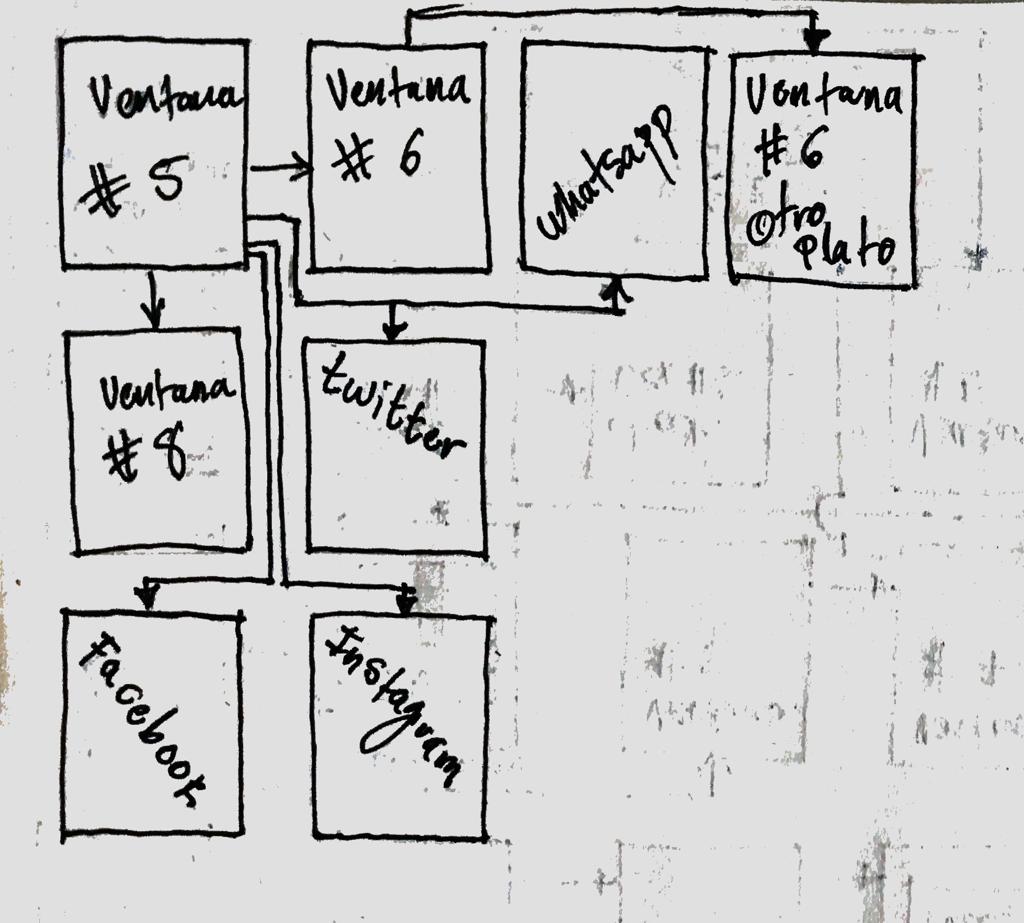 Ventana
# 5
Ventana
# 6
Whatsapp
Ventana
# 6
Otro
Plato
Ventana
# 8
twitter
Facebook
Instagram